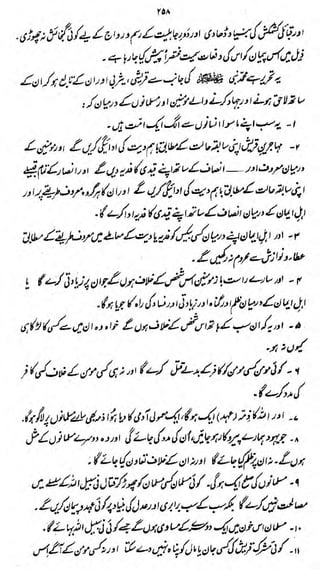 ۲۵۸
اور قبائلی کشمکش کی بنیاد ڈھا دی اور دورِ جاہلیت کے رسم و رواج کے لیے کوئی گنجائش نہ چھوڑی۔
ذیل میں اس پیمان کو اس کی دفعات سمیت مختصراً پیش کیا جا رہا ہے۔
یہ تحریر ہے محمد نبی ﷺ کی جانب سے قریشی، یثربی اور ان کے تابع ہو کر ان کے
ساتھ لاحق ہونے اور جہاد کرنے والے مؤمنین اور مسلمانوں کے درمیان کہ:
۱۔ یہ سب اپنے ماسوا انسانوں سے الگ ایک امت ہیں۔
۲۔ مہاجرینِ قریش اپنی سابقہ حالت کے مطابق باہم دیت کی ادائیگی کریں گے اور مؤمنین کے
درمیان معروف اور ــــــ انصاف کے ساتھ اپنے قیدی کا فدیہ دیں گے اور انصار کے تمام قبیلے
اپنی سابقہ حالت کے مطابق باہم دیت کی ادائیگی کریں گے اور ان کا ہر گروہ معروف طریقے پر اور
اہلِ ایمان کے درمیان انصاف کے ساتھ اپنے قیدی کا فدیہ ادا کرے گا۔
۳۔ اور اہلِ ایمان اپنے درمیان کسی بیکس کو فدیہ یا دیت کے معاملے میں معروف طریقے کے مطابق
عطاء و نوازش سے محروم نہ رکھیں گے۔
۴۔ اور سارے راست باز مؤمنین اس شخص کے خلاف ہوں گے جو ان پر زیادتی کرے گا یا
اہلِ ایمان کے درمیان ظلم اور گناہ اور زیادتی اور فساد کی راہ کا جویا ہوگا۔
۵۔ اور یہ کہ ان سب کے ہاتھ اس شخص کے خلاف ہوں گے خواہ وہ ان میں سے کسی کا لڑکا ہی
کیوں نہ ہو۔
۶۔ کوئی مومن کسی مومن کو کافر کے بدلے قتل کرے گا اور نہ ہی کسی مومن کے خلاف کسی کافر
کی مدد کرے گا۔
۷۔ اور اللہ کا ذمہ (عہد) ایک ہوگا، ایک معمولی آدمی کا دیا ہوا ذمہ بھی سارے مسلمانوں پر لاگو ہوگا۔
۸۔ جو یہود ہمارے پیروکار ہو جائیں، اُن کی مدد کی جائے گی اور وہ دوسرے مسلمانوں کے مثل
ہوں گے۔ نہ ان پر ظلم کیا جائے گا اور نہ ان کے خلاف تعاون کیا جائے گا۔
۹۔ مسلمانوں کی صلح ایک ہوگی۔ کوئی مسلمان کسی مسلمان کو چھوڑ کر قتال فی سبیل اللہ کے سلسلے میں
مصالحت نہیں کرے گا بلکہ سب کے سب برابری اور عدل کی بنیاد پر کوئی عہد و پیمان کریں گے۔
۱۰۔ مسلمان اس خون میں ایک دوسرے کے مساوی ہوں گے جسے کوئی فی سبیل اللہ بہائے گا۔
۱۱۔ کوئی مشرک قریش کی کسی جان یا مال کو پناہ نہیں دے سکتا اور نہ کسی مومن کے آگے اس